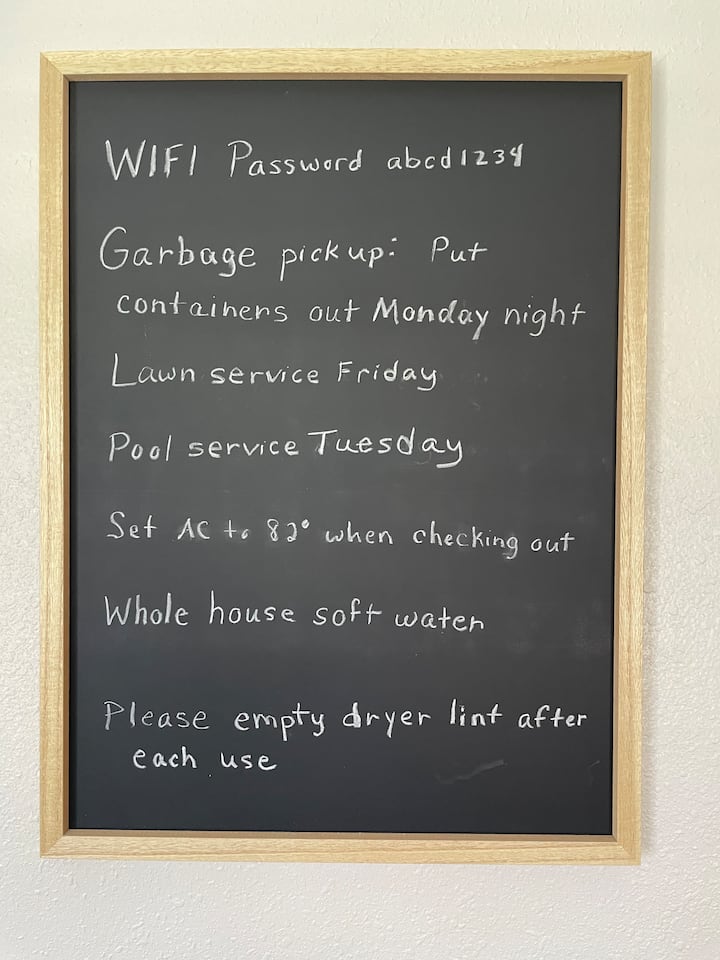 WIFI Password abcd1234
Garbage pickup: Put
containers out Monday night
Lawn service Friday
Pool service Tuesday
Set AC to 82° when checking out
Whole house soft water
Please empty dryer lint after
each use